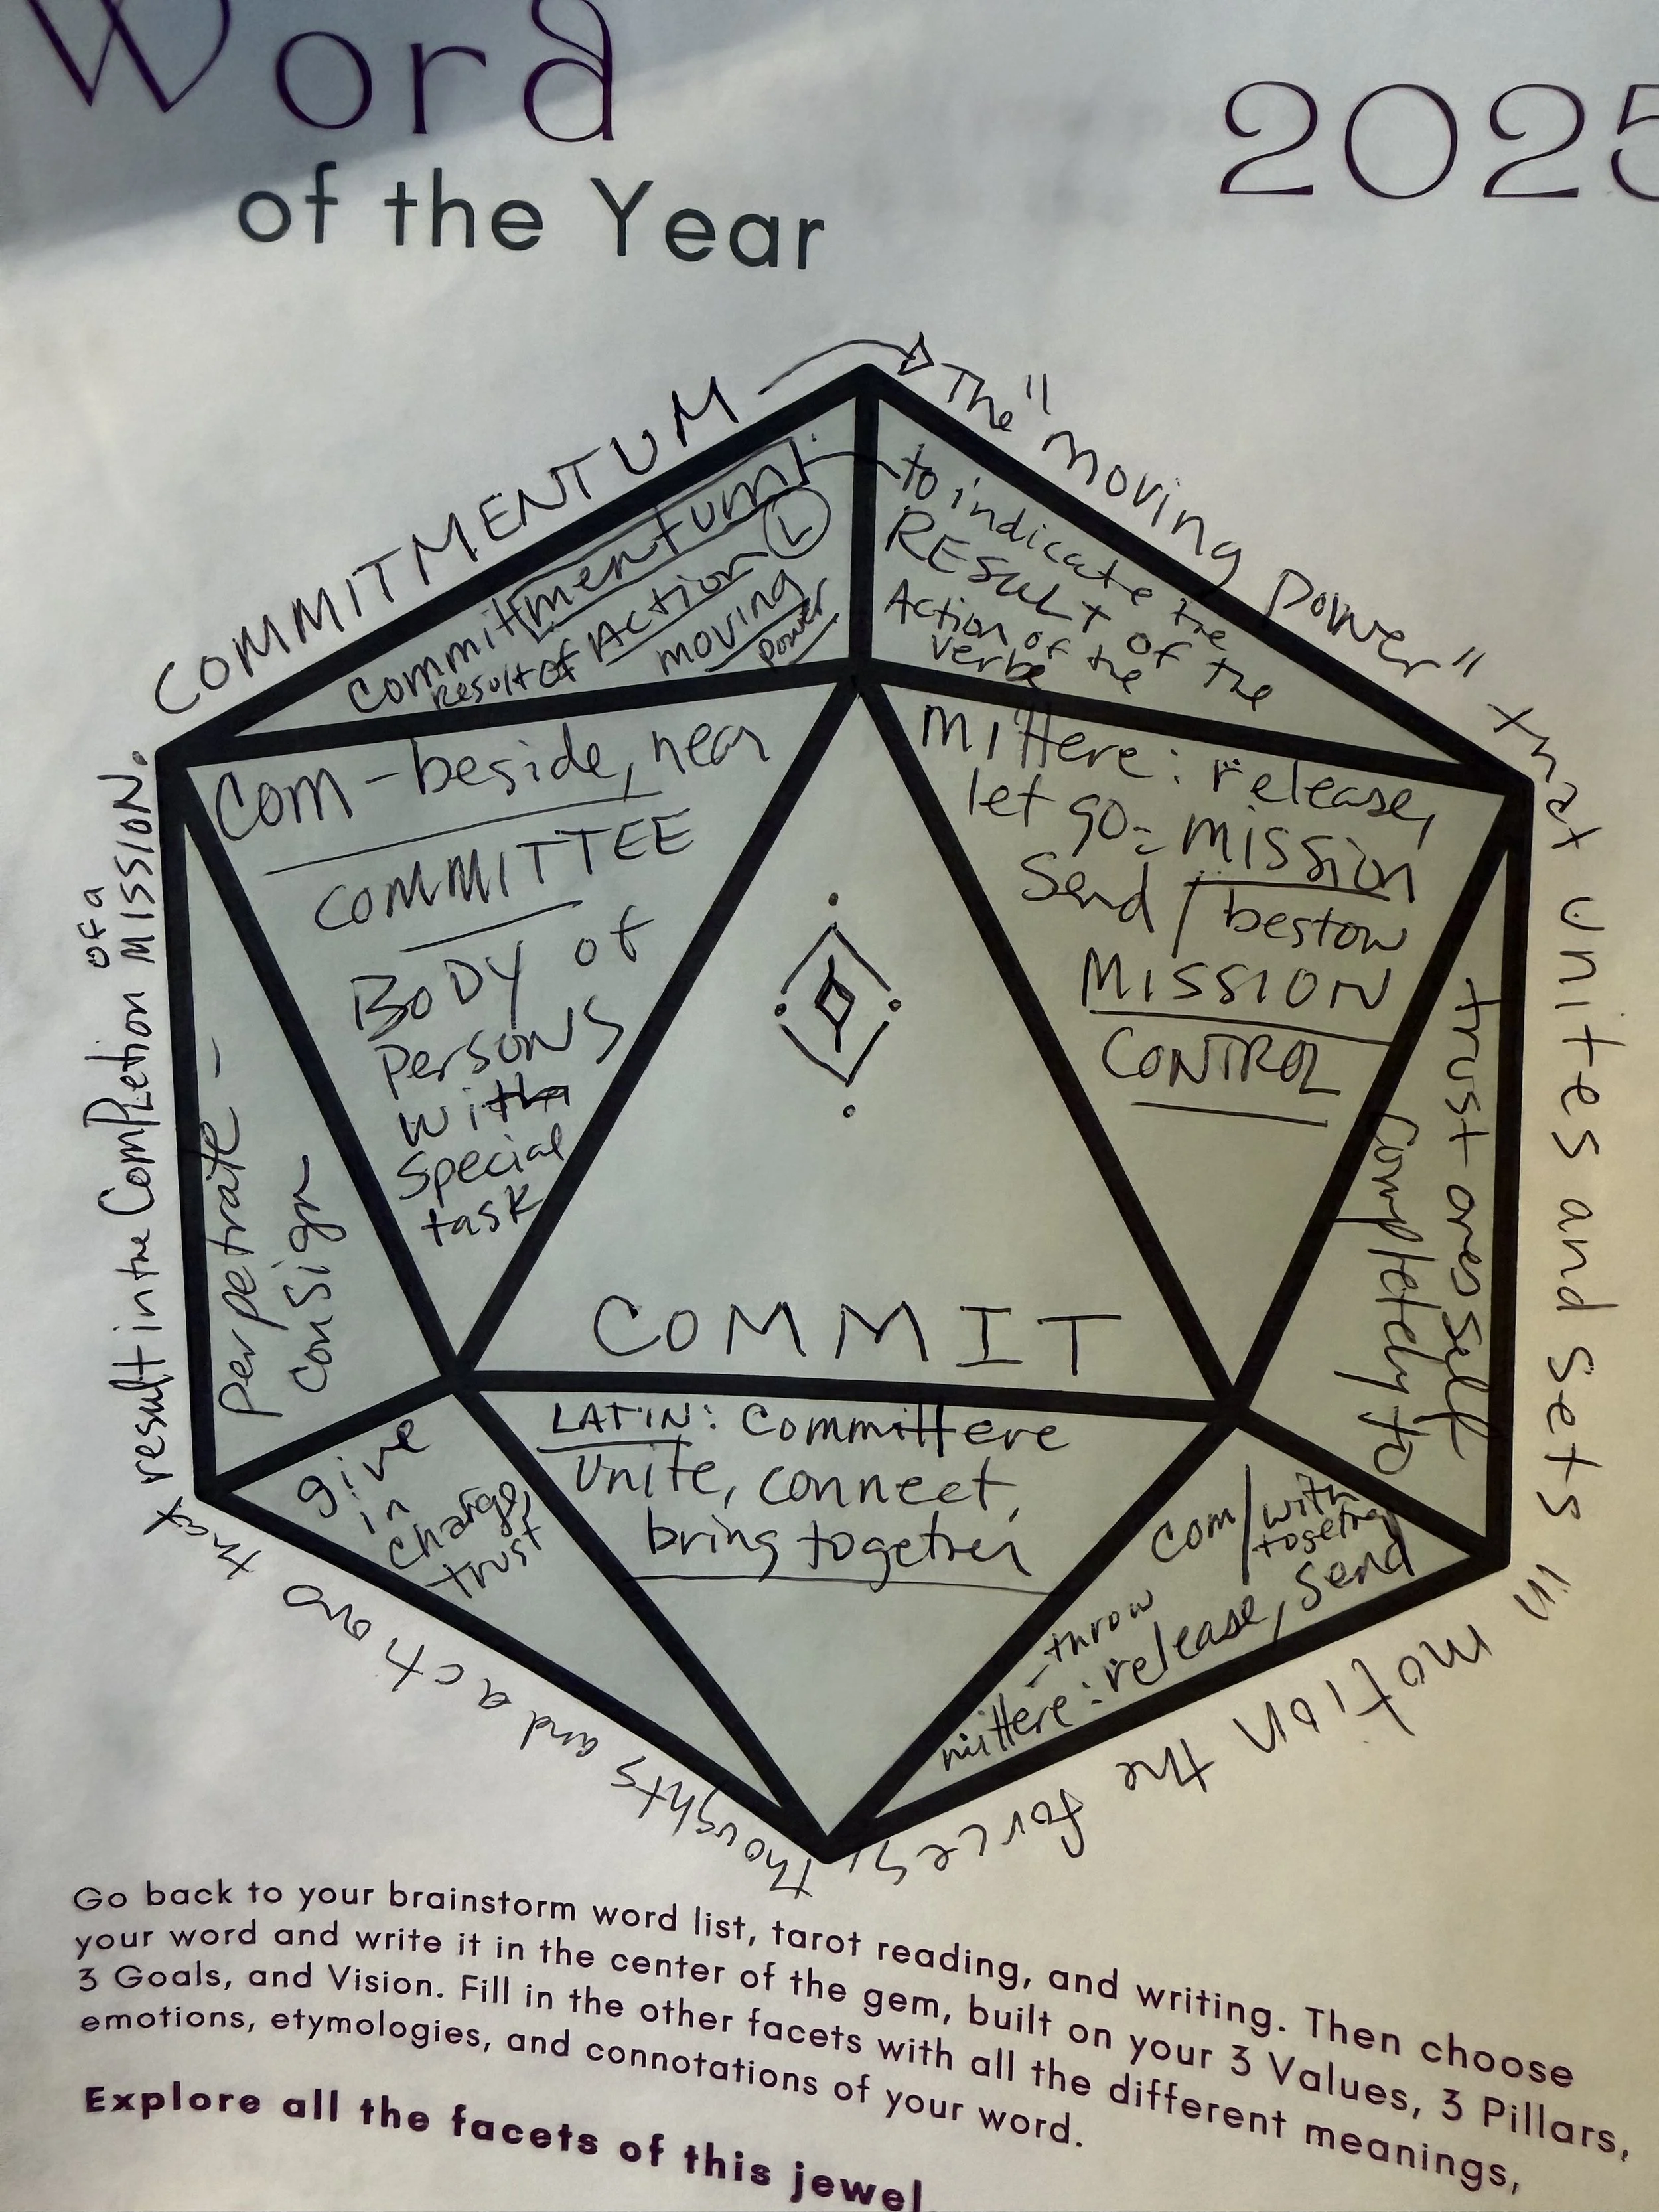 Word
of the Year
2025
COMMITMENTUM
The "moving power"
that unites and sets
in motion the forces,
thoughts and acts
that
result in the Completion of a MISSION.
Commitmentum
Result of Action L
moving
power
to indicate the
RESULT of the
Action of the
verb
Com - beside, near
COMMITTEE
BODY of
Persons
with a
special
task
mittere: release,
let go = mission
Send / bestow
MISSION
CONTROL
COMMIT
perpetrate -
consign
trust oneself
completely to
give
in
charge,
trust
LATIN: Committere
Unite, connect,
bring together
com/with
together
- throw
mittere: release, send
Go back to your brainstorm word list, tarot reading, and writing. Then choose
your word and write it in the center of the gem, built on your 3 Values, 3 Pillars,
3 Goals, and Vision. Fill in the other facets with all the different meanings,
emotions, etymologies, and connotations of your word.
Explore all the facets of this jewel